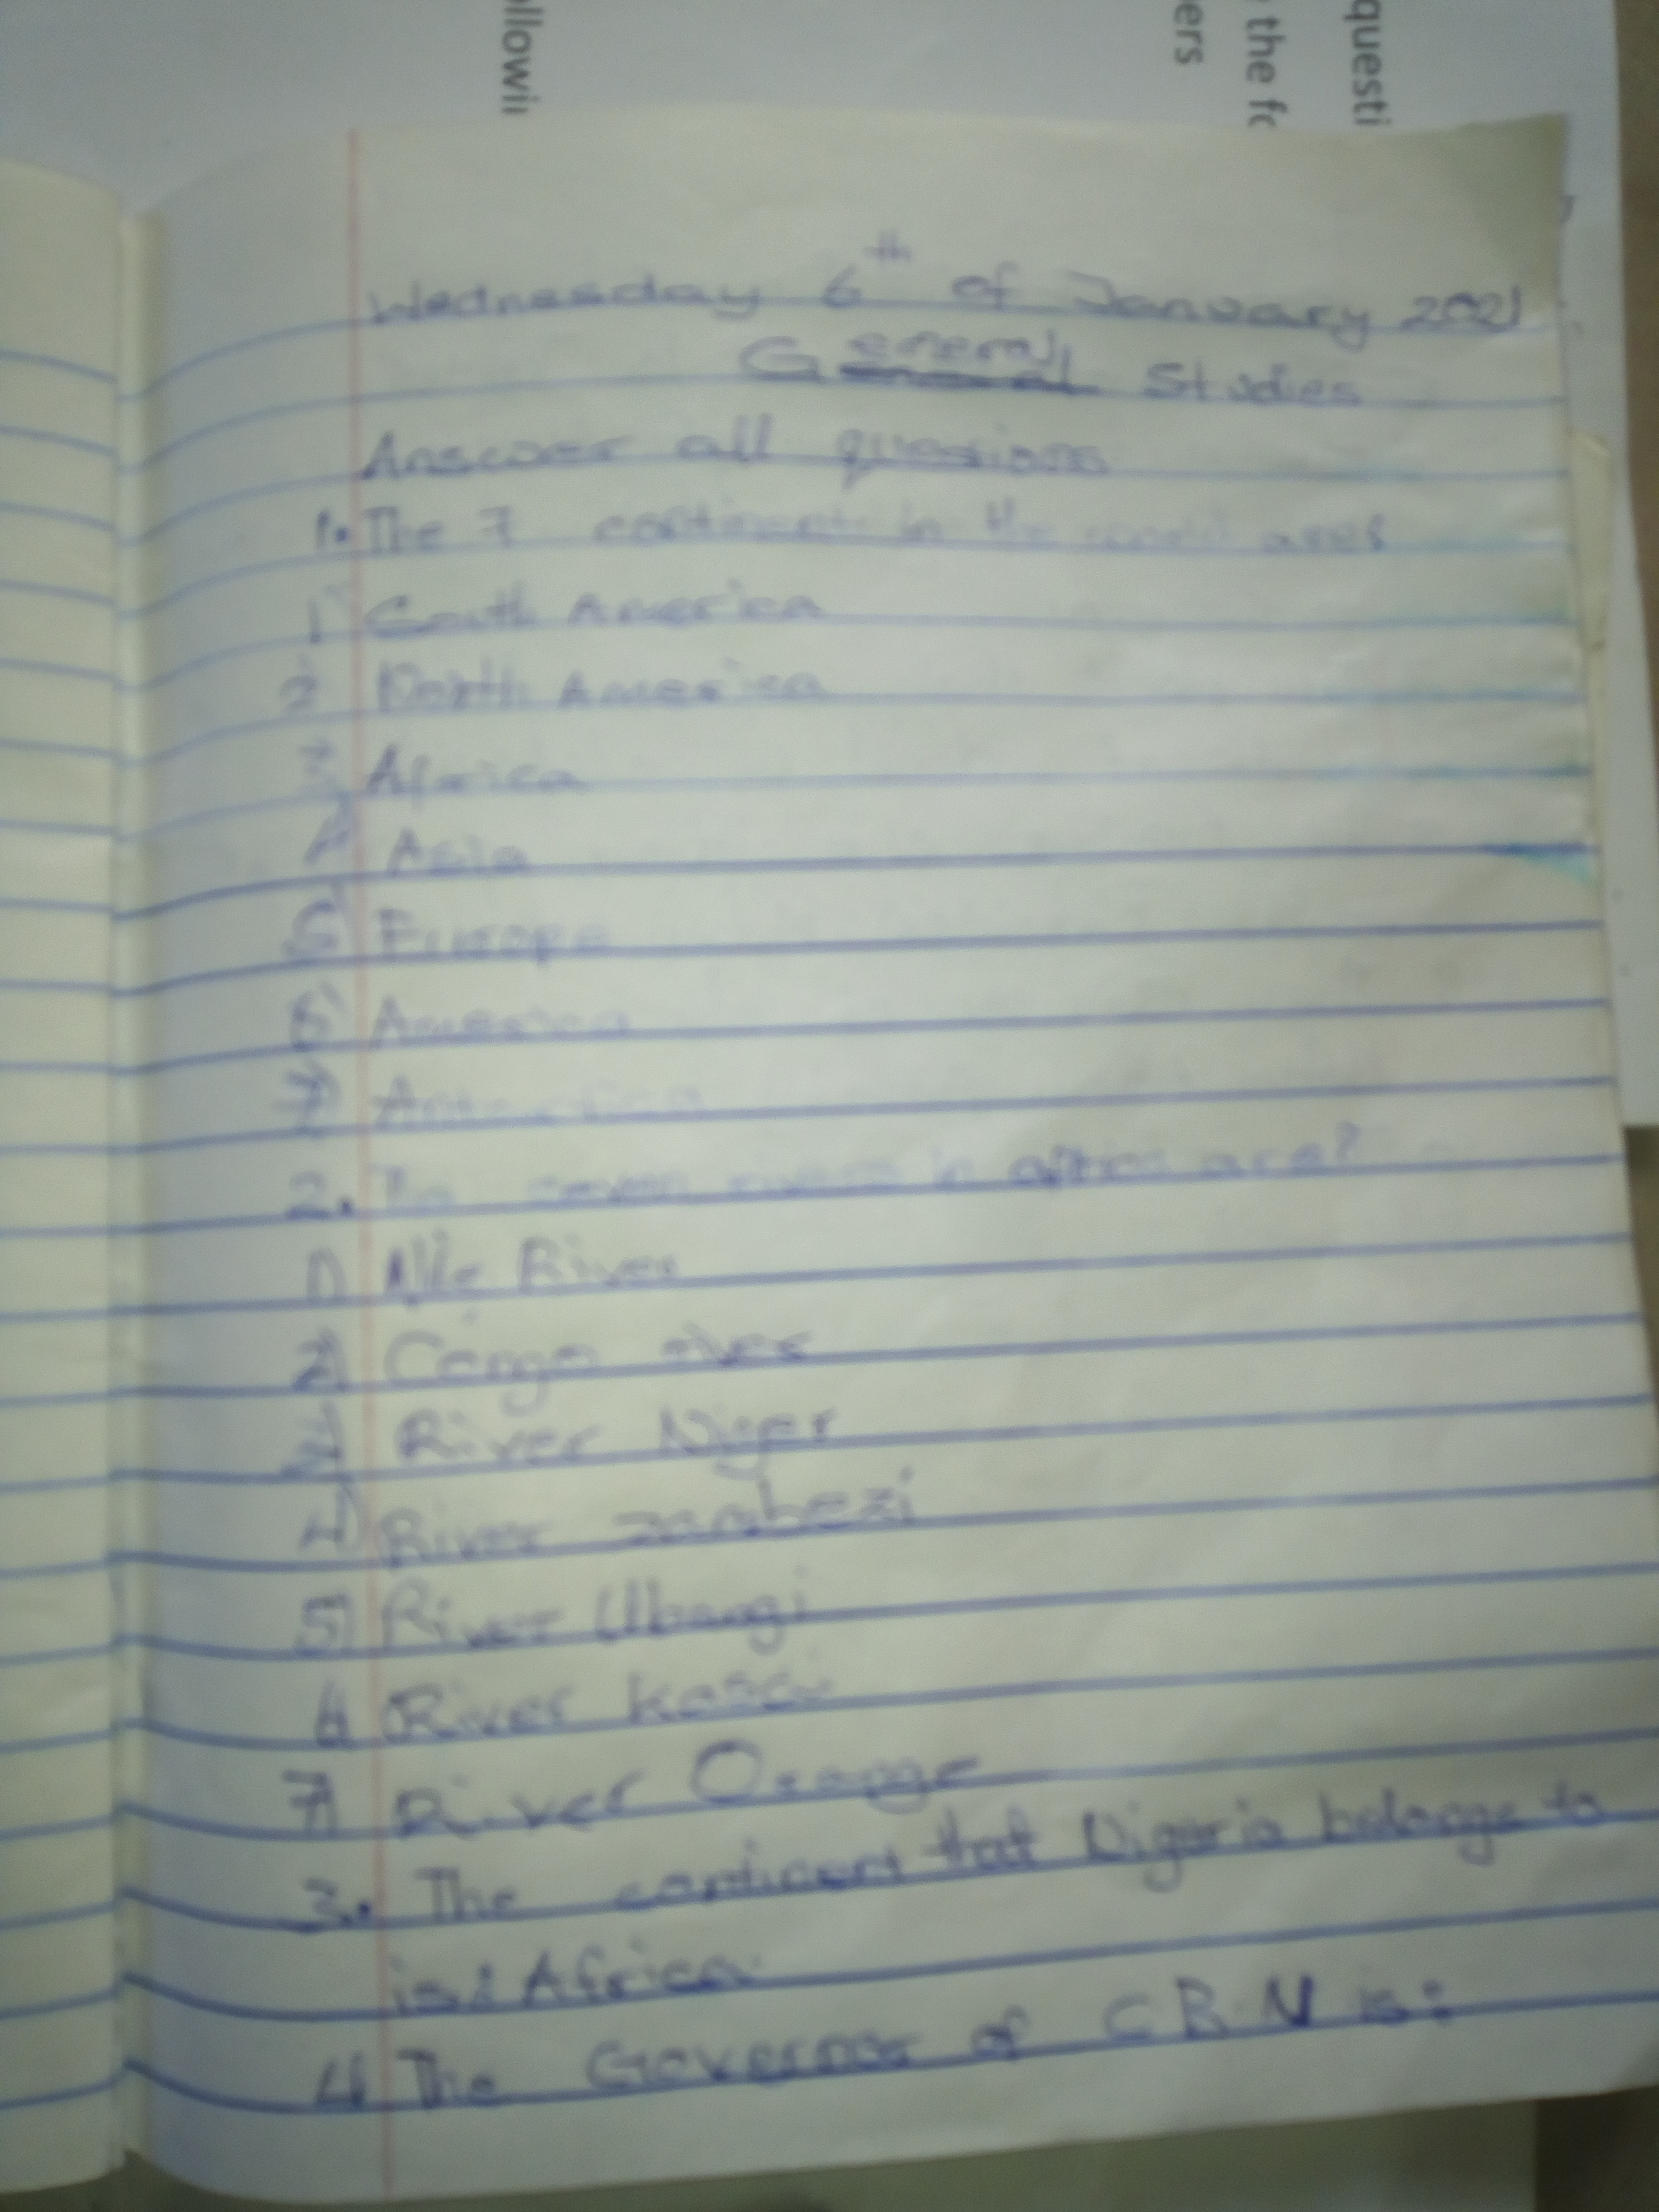 questi
the fo
ers
llowi
Wednesday 6th of January 2021
General Studies
Answer all quesions
1. The 7 continent in the world are?
1 South America
2 North America
3 Africa
4 Asia
5 Europe
6 America
7 Antarctica
2. The seven rivers in africa are?
1) Nile River
2) Congo river
3) River Niger
4) River zambezi
5) River Ubangi
6 River kasai
7) River Orange
3. The continent that Nigeria belongs to
is: Africa
4 The Governor of C B N is: